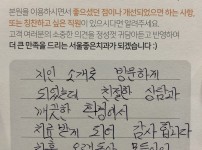 본원을 이용하시면서 좋으셨던 점이나 개선되었으면 하는 사항,
또는 칭찬하고 싶은 직원이 있으시다면 알려주세요.
고객 여러분의 소중한 의견을 정성껏 귀담아듣고 반영하여
더 큰 만족을 드리는 서울좋은치과가 되겠습니다 :)
지인 소개로 방문하게
되었는데 친절한 상담과
깨끗한 환경에서
치료 받게 되어 감사합니다
오래